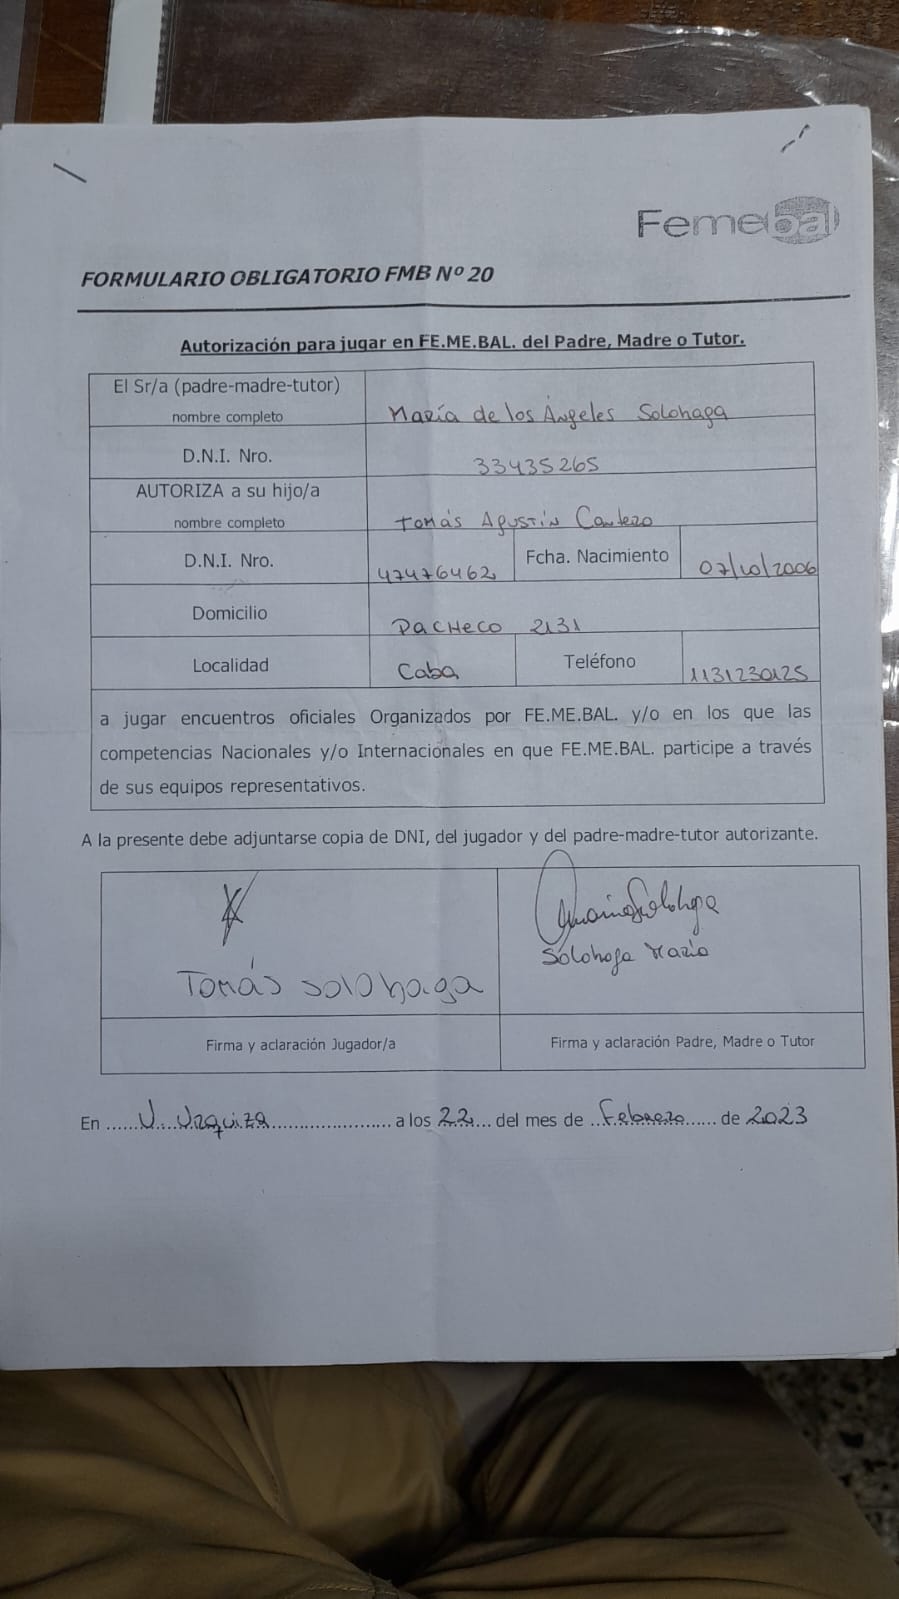 Femebal
FORMULARIO OBLIGATORIO FMB Nº 20
Autorización para jugar en FE.ME.BAL. del Padre, Madre o Tutor.
El Sr/a (padre-madre-tutor)
nombre completo
María de los Ángeles Solohaga
D.N.I. Nro.
33435265
AUTORIZA a su hijo/a
nombre completo
Tomás Agustín Cantero
D.N.I. Nro.
47476462
Fcha. Nacimiento
07/10/2006
Domicilio
Pacheco 2131
Localidad
Caba
Teléfono
1131230125
a jugar encuentros oficiales Organizados por FE.ME.BAL. y/o en los que las
competencias Nacionales y/o Internacionales en que FE.ME.BAL. participe a través
de sus equipos representativos.
A la presente debe adjuntarse copia de DNI, del jugador y del padre-madre-tutor autorizante.
Tomás solohaga
Solohaga María
Firma y aclaración Jugador/a
Firma y aclaración Padre, Madre o Tutor
En ......V...Urquiza...................... a los 22... del mes de ..Febrero...... de 2023